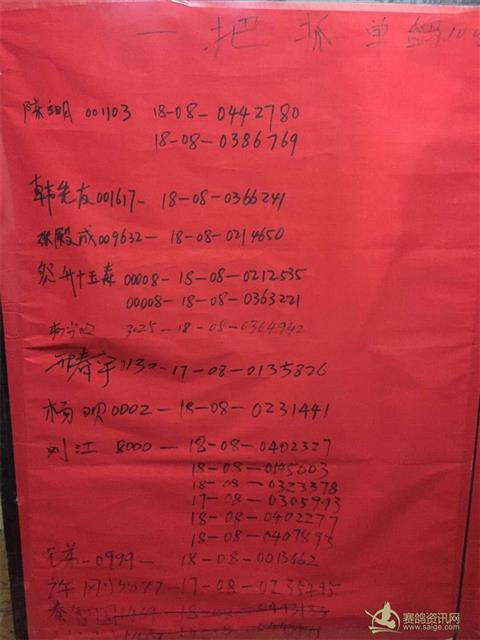 一把抓 单鸽
陈翊 001103 18-08-0442780
18-08-0386769
韩先友 001617- 18-08-0366241
张殿成 009632-18-08-0214650
贺升十五森 00008-18-08-0212535
00008-18-08-0363221
3025-18-08-0364942
-17-08-0135826
杨 0002-18-08-0231441
刘江 8000-18-08-0402327
18-08-0145003
18-08-0323378
17-08-0305993
18-08-0402277
18-08-0407893
兄弟-0999- 18-08-0013662
许刚 -17-08-0235795
秦智国
赛鸽资讯网
www.saige.com